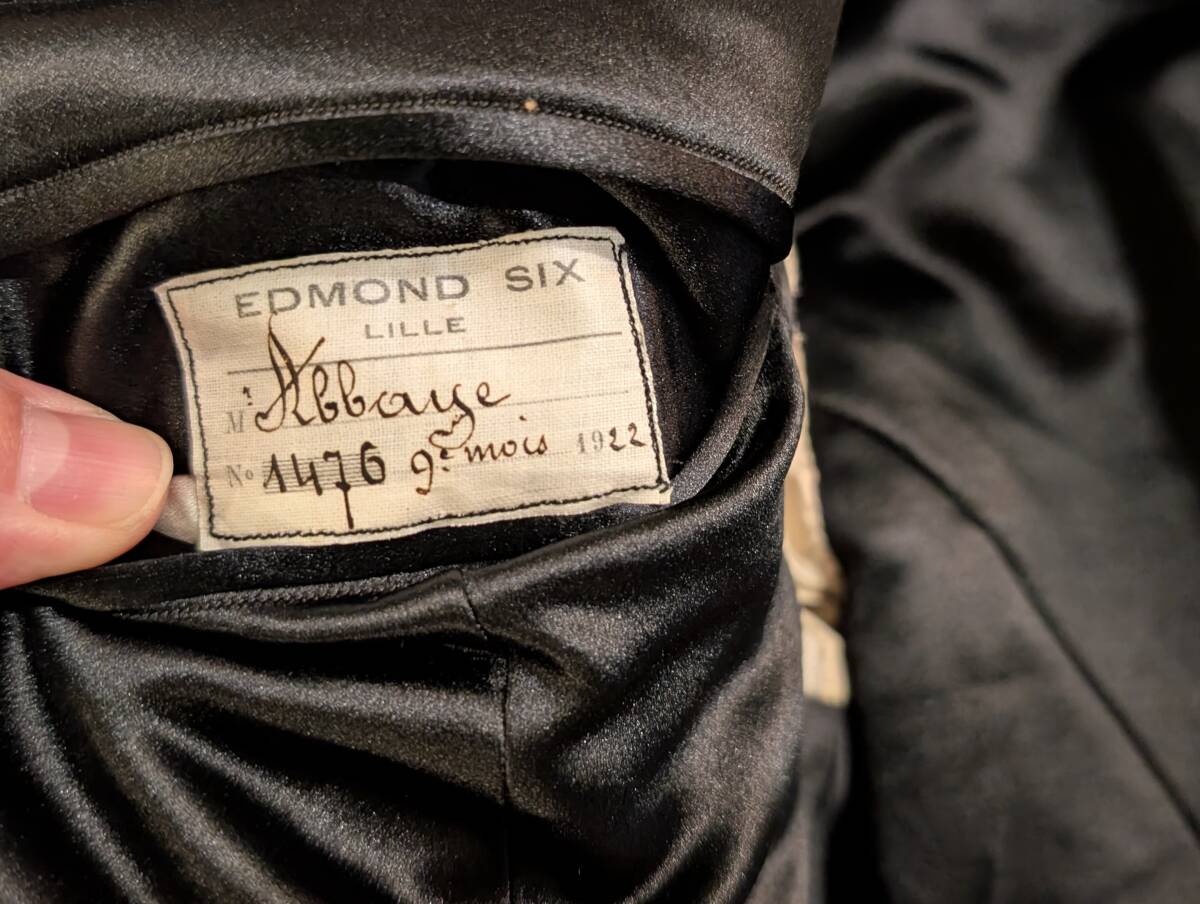 EDMOND SIX
LILLE
M: Abbaye
No 1476 9e mois 1922